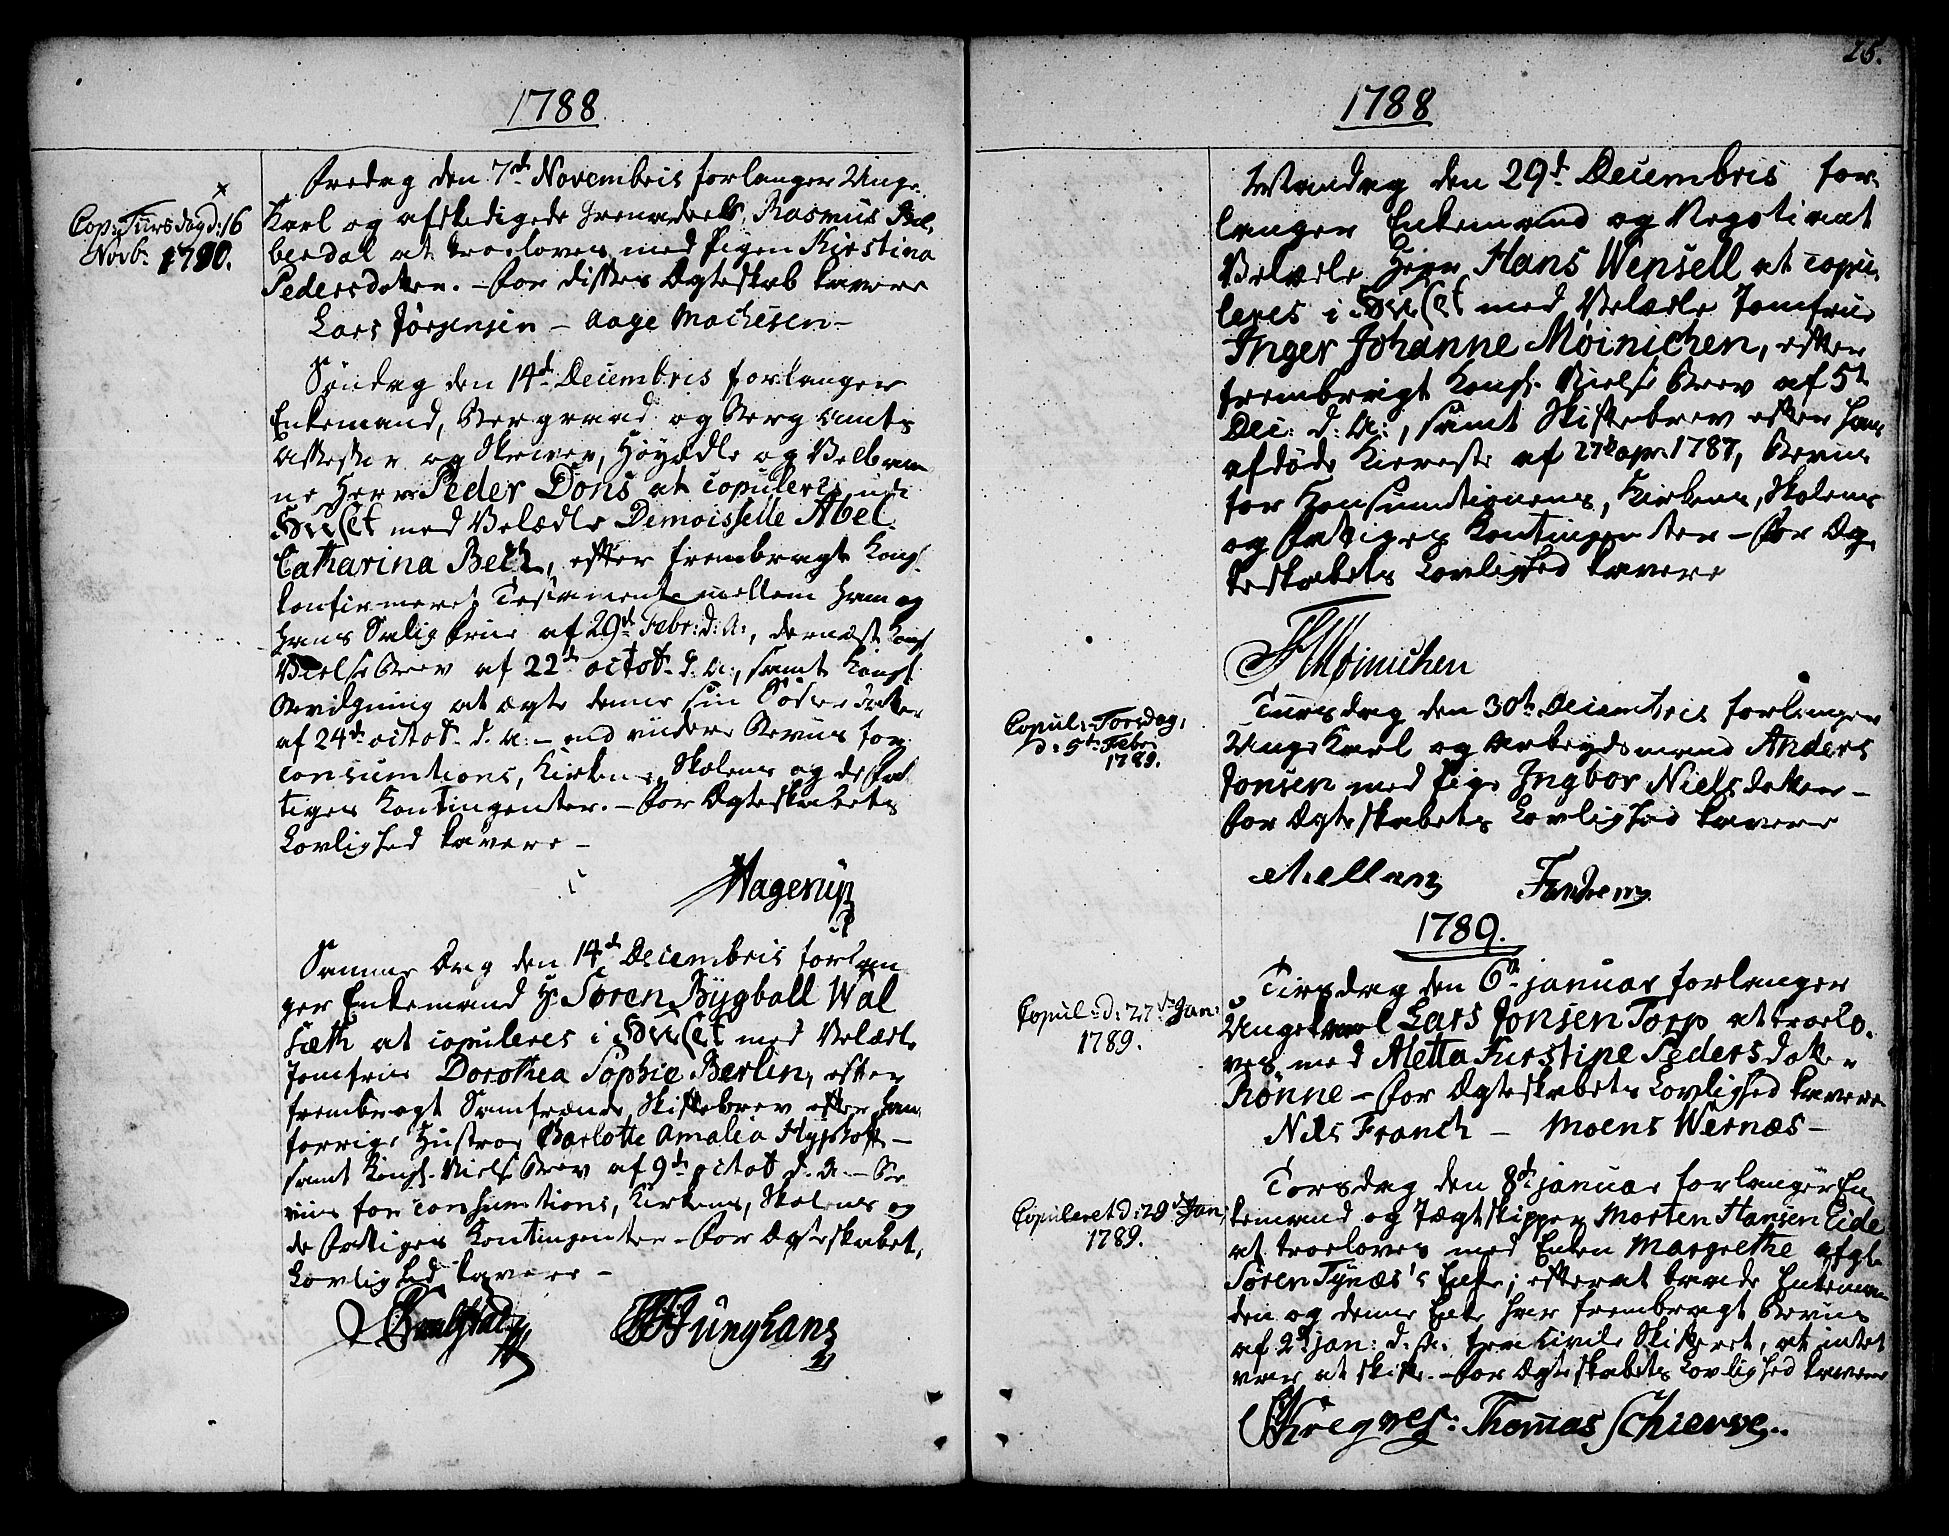 1788
Cop: Tiirsdag d: 16
Novb: 1790.
Fredag den 7d. Novembris forlanger Unge
Karl og afskedigede Grenadeer Rasmus Bal,
berdal at troeloves med Pigen Kirstina
Pedersdotter. – For disses Ægteskab kavere
Lars Jørgensen – Aage Mochesen –
Søndag den 14d. Decembris forlanger
Enkemand, Bergraad og Berg Amts
Assessor og Skriver, Høyædle og Velbaar
ne Herr Peder Dons at copuleres udi
Huuset med Velædle Demoisselle Abel
Catharina Bech, efter frembragt Kongl.
konfirmeret Testamente mellem Ham og
Hans Salig Frue af 29d. Febr: d: A:, dernæst Kongl
Vielse Brev af 22d octob. d. A:, samt Kongl.
Bevilgning at ægte denne sin Søsterdotter
af 24d. octob. d. A: – end videre Beviis for
consumtions, Kirkens, Skolens og de Fat
tiges Kontingenter. – For Ægteskabets
Lovlighed kavere –
Hagerup
Samme Dag den 14d. Decembris forlan
ger Enkemand Hr Søren Bygball Wal
seth at copuleres i Huuset med Velædle
Jomfrue Dorothea Sophie Berlin, efter
frembragt Samfrænde Skiftebrev efter Han,
forrige Hustroe Barlotte Amalia
samt Kongl. Vielse Brev af 9d. octob d. A. – Be
viis for consumtions, Kirkens, Skolens og
de Fattiges Kontingenter – For Ægteskabet,
Lovlighed kavere –
Junghans
26.
1788
Mandag den 29d. Decembris for,
langer Enkemand og Negotiant
Velædle Herr Hans Wensell at copu,
leres i Huuset med Velædle Jomfrue
Inger Johanne Møinichen, efter
frembragt Kongl. Vielse Brev af 5t
Dec: d: A:, samt Skiftebrev efter Hans
afdøde Kiereste af 27d apr. 1787, Beviis
for Konsumtionens, Kirkens, Skolens
og Fattiges Kontingenter – For Æg,
teskabets Lovlighed kavere
Møinichen
Copul: Torsdag,
d: 5t. Febr.
1789.
Tiirsdag den 30te Decembris forlanger
Unge Karl og Arbeydsmand Anders
Jonsen med Pige Ingbor Nielsdotter –
For Ægteskabets Lovlighed kavere
1789.
Copul: d: 27de Jan:
1789.
Tirsdag den 6te januar forlanger
Ungekarl Lars Jonsen Torp at troelo,
ves med Aletta Kirstine Pedersdotter
Rønne – For Ægteskabets Lovlighed kavere
Nils Franch – Moens Wernæs –
Copuleret d: 29d. Jan:
1789.
Torsdag den 8d. januar forlanger En,
kemand og Jægtskipper Morten Hansen Eide
at troeloves med Enken Margrethe afgl.
Søren Tynæs's Enke; efterat baade Enkeman
den og denne Enke har frembragt Beviis
af 2d. jan: d. A. fra Civile Skifteret, at intet
var at skifte. – For Ægteskabets Lovlighed kavere
Thomas Schierve